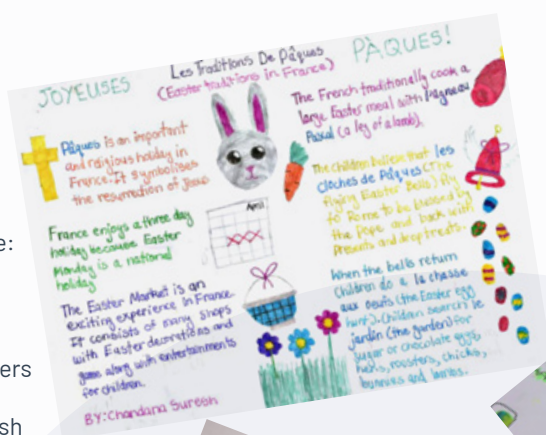 JOYEUSES
PÀQUES!
Les Traditions De Pâques
(Easter traditions in France)
Pâques is an important
and religious holiday in
France. It symbolises
the resurrection of Jesus
France enjoys a three day
holiday because Easter
Monday is a national
holiday
The Easter Market is an
exciting experience in France.
It consists of many shops
with Easter decorations and
games along with entertainments
for children.
BY: Chandana Suresh
April
The French traditionally cook a
large Easter meal with l'agneau
Pascal (a leg of a lamb).
The children believe that les
cloches de Pâques (The
flying Easter Bells) fly
to Rome to be blessed by
the Pope and back with
presents and drop treats.
When the bells return
children do a la chasse
aux oeufs (the Easter egg
hunt). Children search le
jardin (the garden) for
sugar or chocolate eggs,
hens, roosters, chicks,
bunnies and lambs.
e:
ers
sh